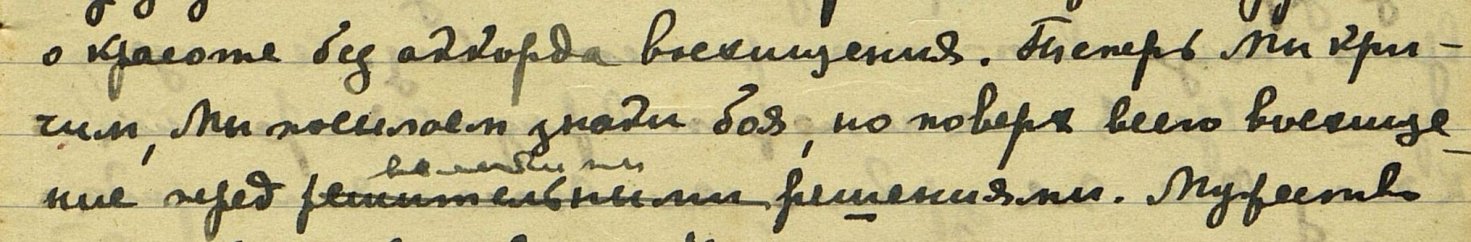 о красоте без аккорда восхищения. Теперь Мы кри-
чим, Мы посылаем знаки боя, но поверх всего восхище-
великими
ние перед решительными решениями. Мужество